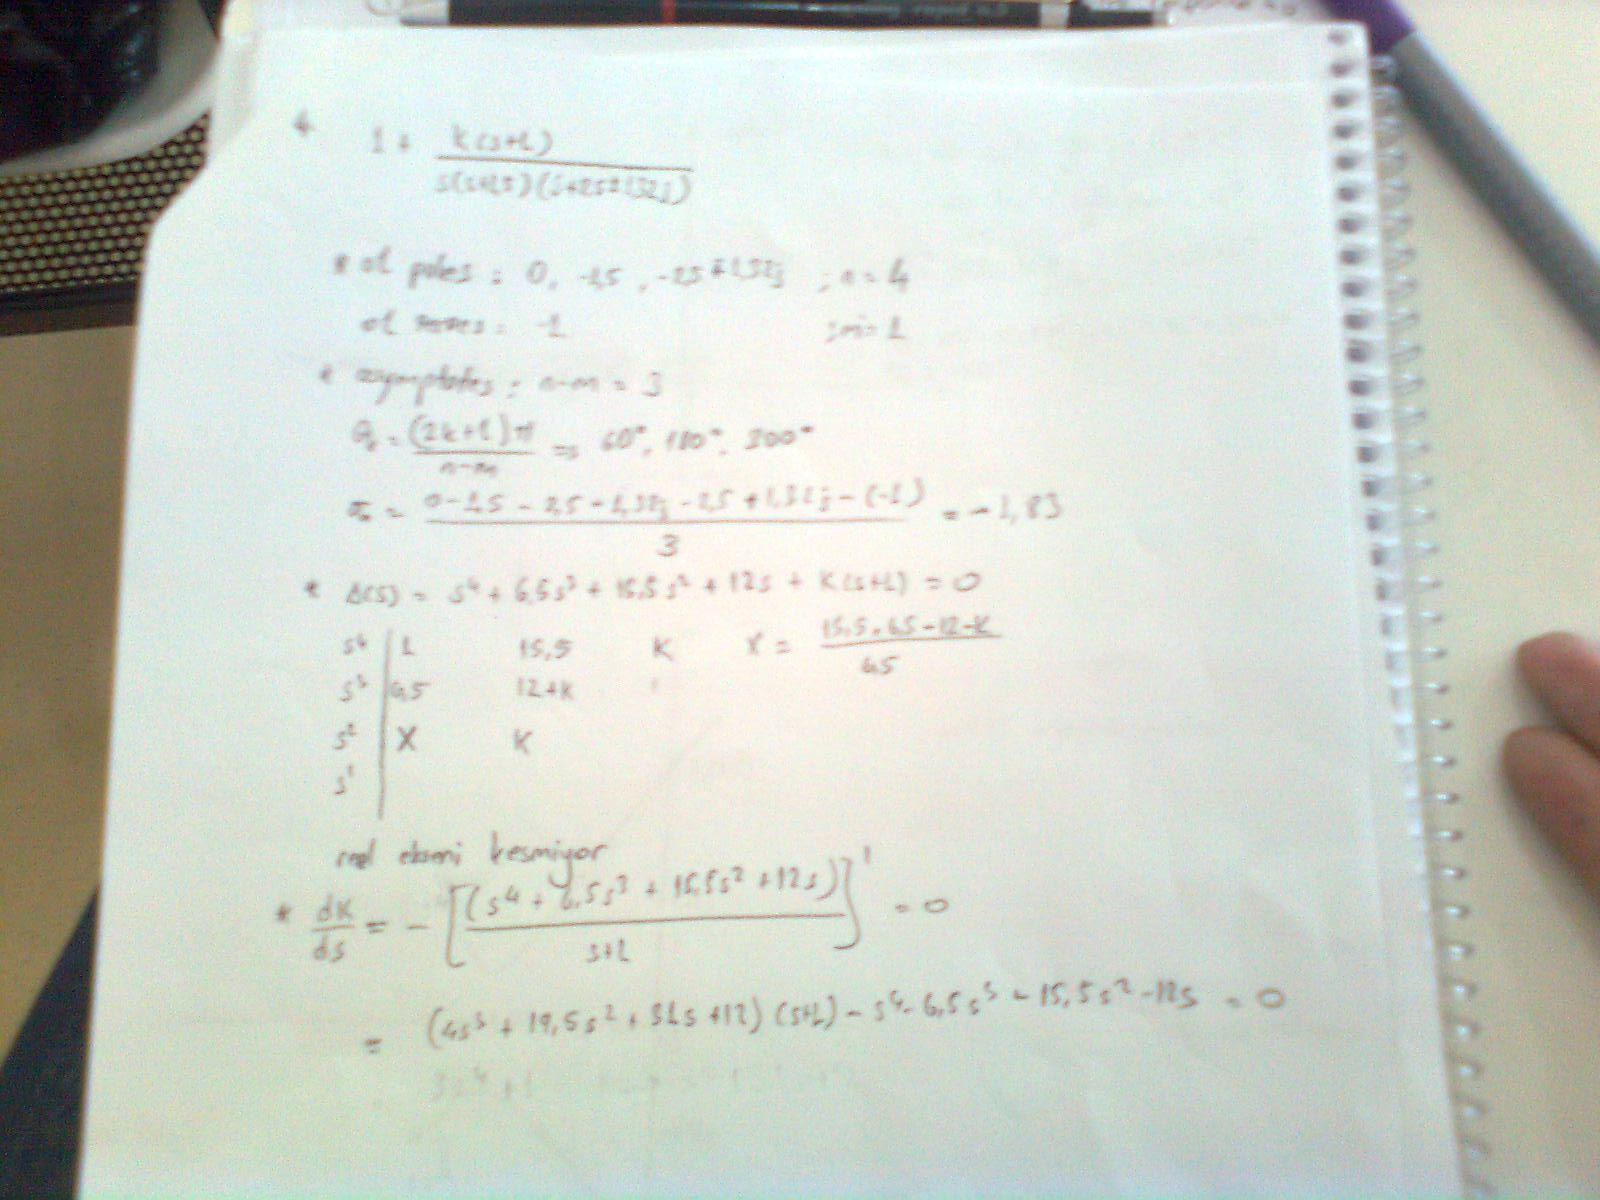 4. 1 + k(s+1) / s(s+1,5)(s+2,5±1,32j)
* of poles : 0, -1,5, -2,5∓1,32j ; n = 4
of zeroes : -1 ; m = 1
* asymptotes ; n-m = 3
θ = (2k+1)π / n-m => 60°, 180°, 300°
σ = 0-1,5-2,5-1,32j-2,5+1,32j-(-1) / 3 = -1,83
* Δ(s) = s⁴ + 6,5s³ + 15,5s² + 12s + K(s+1) = 0
s⁴ | 1 15,5 K X = 15,5.6,5-12-K / 6,5
s³ | 6,5 12+K
s² | X K
s¹ |
reel ekseni kesmiyor
* dK/ds = - [(s⁴ + 6,5s³ + 15,5s² + 12s) / s+1]' = 0
= (4s³ + 19,5s² + 31s + 12) (s+1) - s⁴ - 6,5s³ - 15,5s² - 12s = 0